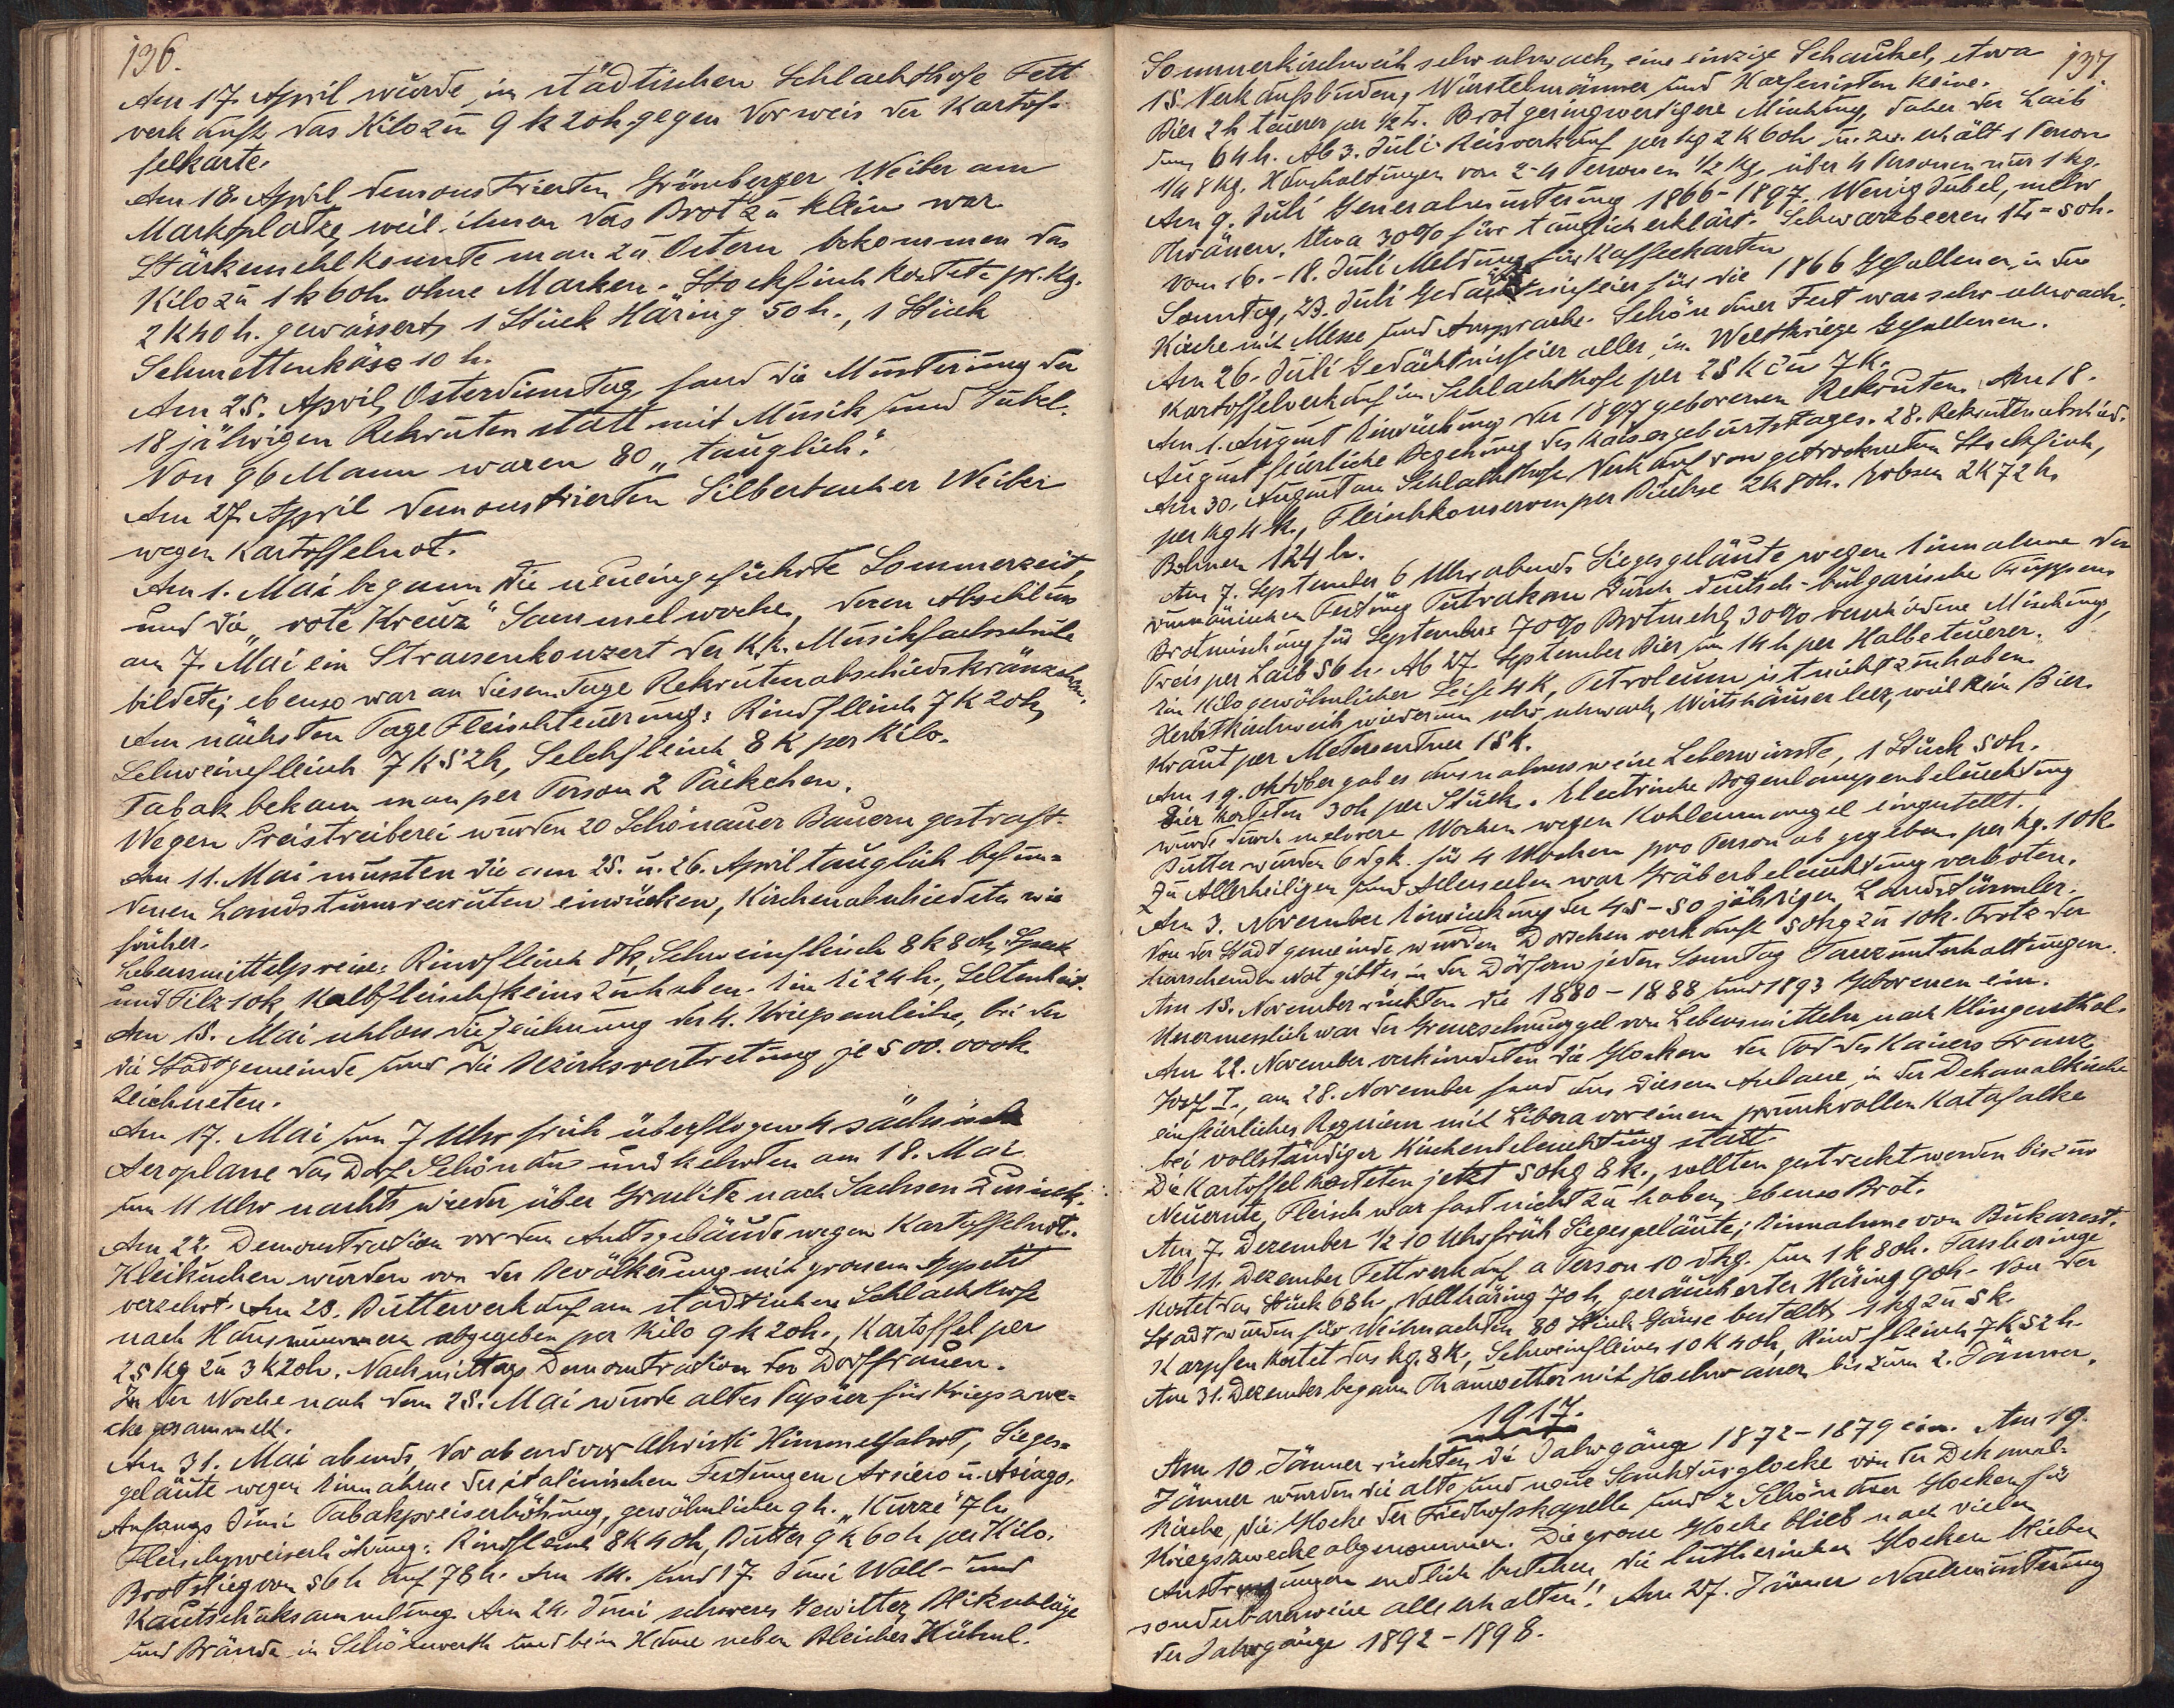 136.
Am 17. April wurde im städtischen Schlachthofe Fett
verkauft das Kilo zu 9 K 20 h gegen Vorweis der Kartof-
felkarte.
Am 18. April demonstrierten Grünberger Weiber am
Marktplatze, weil ihnen das Brot zu klein war.
Stärkemehl konnte man zu Ostern bekommen das
Kilo zu 1 K 60 h. ohne Marken. Stockfisch kostete pr. Kg.
2 K 40 h. gewässert, 1 Stück Häring 50 h., 1 Stück
Schmettenkäse 10 h.
Am 25. April, Osterdienstag, fand die Musterung der
18 jährigen Rekruten statt mit Musik und Jubel.
Von 96 Mann waren 80 „tauglich".
Am 27. April demonstrierten Silberbacher Weiber
wegen Kartoffelnot.
Am 1. Mai begann die neueingeführte Sommerzeit
und die „rote Kreuz" Sammelwoche, deren Abschluss
am 7. Mai ein Strassenkonzert der K.K. Musikfachschule
bildete; ebenso war an diesem Tage Rekrutenabschiedskränzchen.
Am nächsten Tage Fleischteuerung: Rindfleisch 7 K 20 h,
Schweinefleisch 7 K 52 h, Selchfleisch 8 K per Kilo.
Tabak bekam man per Person 2 Päckchen.
Wegen Preistreiberei wurden 20 Schönauer Bauern gestraft.
Am 11. Mai mussten die am 25. u. 26. April tauglich befun-
denen Landsturmrekruten einrücken, Kirchenabschied etc. wie
früher.
Lebensmittelpreise: Rindfleisch 8 K, Schweinfleisch 8 K 80 h, Speck
und Filz 10 K, Kalbfleisch keins zu haben. Ein Ei 24 h., Seltenheit.
Am 15. Mai schloss die Zeichnung der 4. Kriegsanleihe, bei der
die Stadtgemeinde und die Bezirksvertretung je 500.000 K
zeichneten.
Am 17. Mai um 7 Uhr früh überflogen 4 sächsische
Aeroplane das Dorf Schönau und kehrten am 18. Mai
um 11 Uhr nachts wieder über Graslitz nach Sachsen zurück.
Am 22. Demonstration vor dem Amtsgebäude wegen Kartoffelnot.
Kleikuchen wurden von der Bevölkerung mit grossem Appetit
verzehrt. Am 23. Butterverkauf am städtischen Schlachthofe
nach Hausnummern abgegeben per Kilo 9 K 20 h., Kartoffel per
25 Kg zu 3 K 20 h. Nachmittags Demonstration der Dorffrauen.
In der Woche nach dem 25. Mai wurde altes Papier für Kriegszwe-
cke gesammelt.
Am 31. Mai abends, Vorabend vor Christi Himmelfahrt, Sieges-
geläute wegen Einnahme der italienischen Festungen Arsiero u. Asiago.
Anfangs Juni Tabakpreiserhöhung, gewöhnlicher 9 h. „Kurze" 7 h
Fleischpreiserhöhung: Rindfleisch 8 K 40 h, Butter 9 K 60 h per Kilo.
Brot stieg von 56 h auf 78 h. Am 14. und 17. Juni Woll- und
Kautschuksammlung. Am 24. Juni schweres Gewitter, Blitzschläge
und Brände in Schönwerth und beim Hause neben Bleicher Hühnl.
137.
Sommerkirchweih sehr schwach, eine einzige Schaukel, etwa
15 Verkaufsbuden, Würstelmänner und Harfenisten keine.
Bier 2 h teuerer per 1/2 L. Brot geringwertigere Mischung, daher der Laib
um 64 h. Ab 3. Juli Reisverkauf per Kg 2 K 60 h u. zw. erhält 1 Person
1/4 Kg. Haushaltungen von 2-4 Personen 1/2 Kg, über 4 Personen nur 1 Kg.
Am 9. Juli Generalmusterung 1866-1897. Wenig Jubel, mehr
Thränen. Etwa 30% für tauglich erklärt. Schwarzbeeren 1 L = 50 h.
Vom 16.-18. Juli Meldung für Kaffeekarten
Sonntag, 23. Juli Gedächtnisfeier für die 1866 Gefallenen, in der
Kirche mit Messe und Ansprache. Schönauer Fest war sehr schwach.
Am 26. Juli Gedächtnisfeier aller im Weltkriege Gefallenen.
Kartoffelverkauf im Schlachthofe per 25 K zu 7 K.
Am 1. August Einrückung der 1897 geborenen Rekruten. Am 18.
August feierliche Begehung des Kaisergeburtstages. 28. Rekrutenabschied.
Am 30. August am Schlachthofe Verkauf von getrocknetem Stockfisch,
per Kg 4 K., Fleischkonserven per Büchse 2 K 80 h. Erbsen 2 K 72 h,
Bohnen 124 h.
Am 7. September 6 Uhr abends Siegesgeläute wegen Einnahme der
rumänischen Festung Tutrakan durch deutsch-bulgarische Truppen.
Brotmischung für September: 70% Brotmehl, 30% verschiedene Mischung,
Preis per Laib 56 h. Ab 27. September Bier um 14 h per Halbe teuerer.
Ein Kilo gewöhnlicher Seife 4 K, Petroleum ist nicht zu haben.
Herbstkirchweih wiederum sehr schwach, Wirtshäuser leer, weil kein Bier.
Kraut per Meterzentner 15 K.
Am 19. Oktober gab es ausnahmsweise Leberwürste, 1 Stück 50 h.
Eier kosteten 30 h per Stück. Electrische Bogenlampenbeleuchtung
wurde durch mehrere Wochen wegen Kohlenmangel eingestellt.
Butter wurden 6 dgk. für 4 Wochen pro Person abgegeben per kg. 10 K.
Zu Allerheiligen und Allerseelen war Gräberbeleuchtung verboten.
Am 3. November Einrückung der 45-50 jährigen Landstürmler.
Von der Stadtgemeinde wurden Dorschen verkauft 50 kg zu 10 K. Trotz der
herrschenden Not gibt es in den Dörfern jeden Sonntag Tanzunterhaltungen.
Am 15. November rückten die 1880-1888 und 1893 Geborenen ein.
Unermesslich war der Grenzschmuggel von Lebensmitteln nach Klingenthal.
Am 22. November verkündeten die Glocken den Tod des Kaisers Franz
Josef I., am 28. November fand aus diesem Anlasse in der Dekanalkirche
ein feierliches Requiem mit Libera vor einem prunkvollen Katafalke
bei vollständiger Kirchenbeleuchtung statt.
Die Kartoffel kosteten jetzt 50 kg 8 K., sollten gestreckt werden bis zur
Neuernte, Fleisch war fast nicht zu haben, ebenso Brot.
Am 7. Dezember 1/2 10 Uhr früh Siegesgeläute; Einnahme von Bukarest.
Ab 11. Dezember Fettverkauf a Person 10 dkg. um 1 K 80 h. Fassheringe
kostet das Stück 68 h, Vollhäring 70 h, geräucherter Häring 90 h. Von der
Stadt wurden für Weihnachten 80 Stück Gänse bestellt, 1 kg zu 5 K.
Karpfen kostet das kg. 8 K, Schweinfleisch 10 K 40 h, Rindfleisch 7 K 52 h.
Am 31. Dezember begann Thauwetter mit Hochwasser bis zum 2. Jänner.
1917.
Am 10. Jänner rückten die Jahrgänge 1872-1879 ein. Am 19.
Jänner wurden die alte und neue Sanktusglocke von der Dekanal-
kirche, die Glocke der Friedhofskapelle und 2 Schönauer Glocken für
Kriegszwecke abgenommen. Die grosse Glocke blieb nach vielen
Anstrengungen endlich bestehen, die lutherischen Glocken blieben
sonderbarerweise alle erhalten!! Am 27. Jänner Nachmusterung
der Jahrgänge 1892-1898.